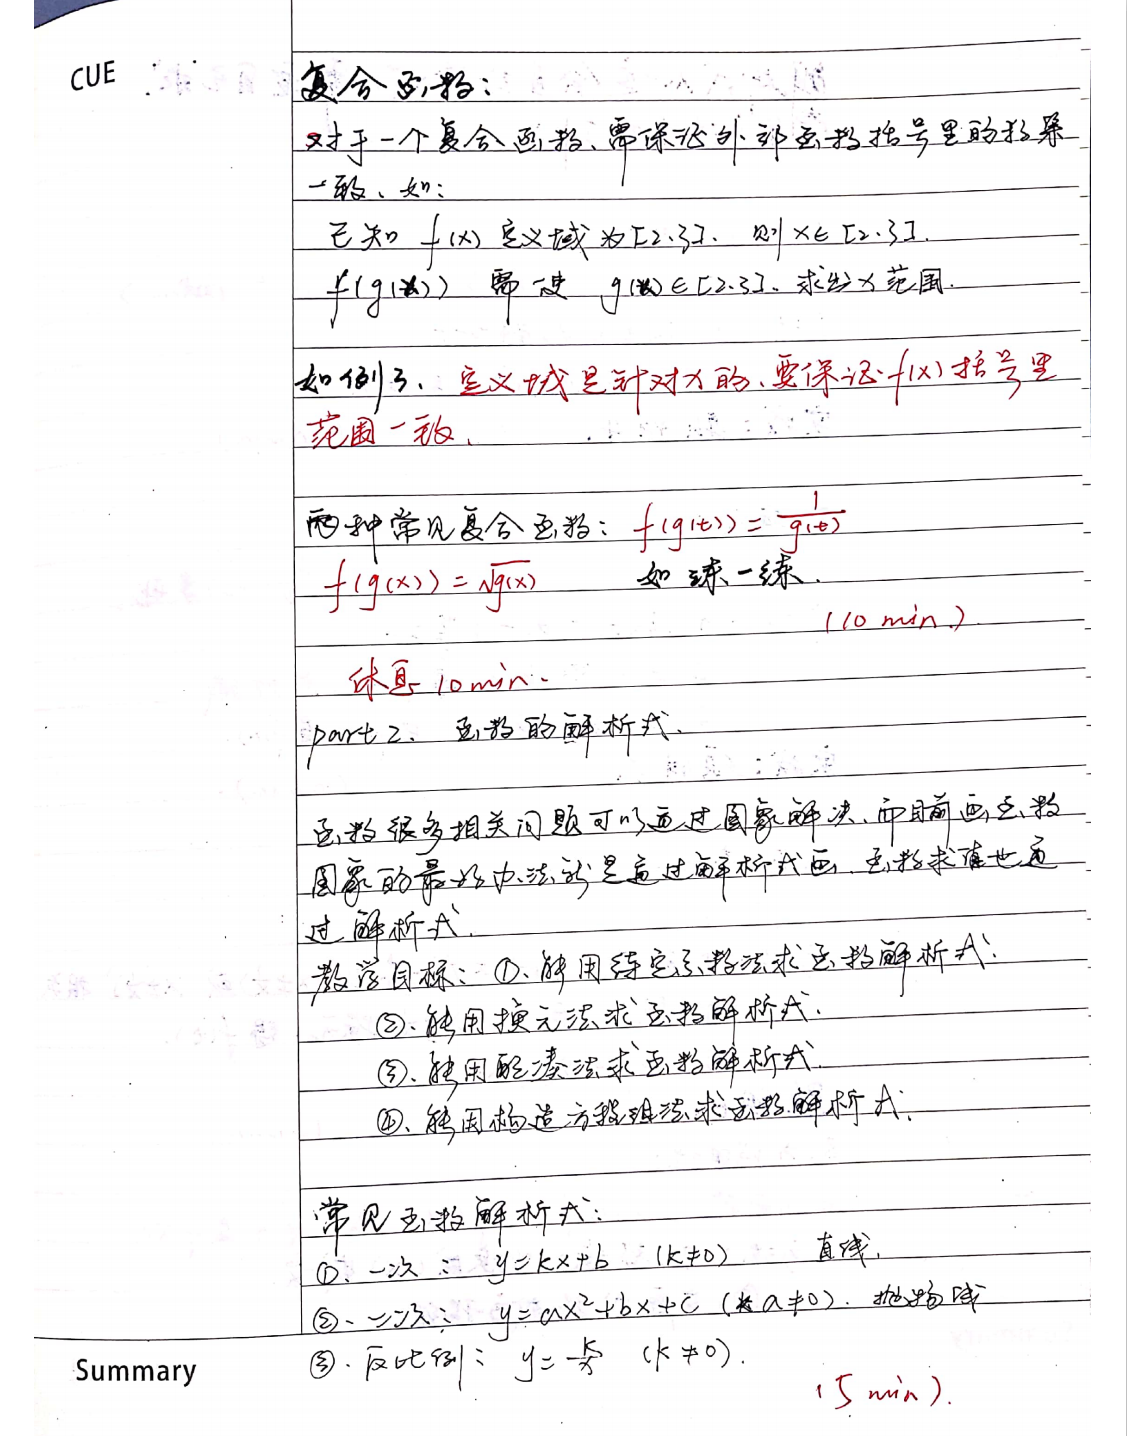 CUE
复合函数:
对于一个复合函数、需保证外部函数括号里的对象
一致、如:
已知 f(x) 定义域为[2.3]. 则 x∈[2.3].
f(g(x)) 需使 g(x)∈[2.3]. 求出x范围.
如例3. 定义域是针对x的、要保证f(x)括号里
范围一致.
两种常见复合函数: f(g(t)) = 1/g(t)
f(g(x)) = √g(x) 如 练一练.
(10 min.)
休息 10 min.
part 2. 函数的解析式.
函数很多相关问题可以通过图象解决、而目前画函数
图象的最好办法就是通过解析式画. 函数求值也通
过解析式.
教学目标: ①. 能用待定系数法求函数解析式.
②. 能用换元法求函数解析式.
③. 能用配凑法求函数解析式.
④. 能用构造方程组法求函数解析式.
常见函数解析式:
①. 一次: y=kx+b (k≠0) 直线.
②. 二次: y=ax²+bx+c (a≠0). 抛物线
③. 反比例: y=k/x (k≠0).
Summary
(5 min).